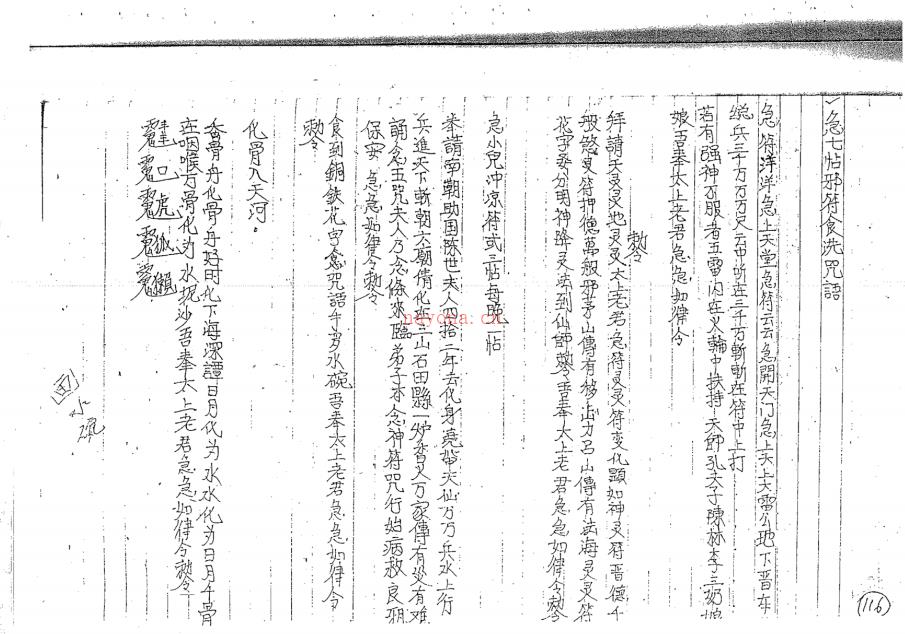 急七帖邪符食洗咒語
急符洋洋急上天堂急符云云急開天门急上天上天雷公地下晋车
统兵三千万万万尺云中听在三千万斬斬在符中上打
若有强神不服者五雷内在火輪中扶持天師孔夫子陳林李三奶娘
娘吾奉太上老君急急如律令
勅
拜請天灵灵地灵灵太上老君急符灵灵符变化顕如神灵符晋德千
般慾灵符押德萬般邪茅山傳有移山力吕山傳有法海灵灵符
花字委分明神降灵法到仙師勅令吾奉太上老君急急如律令勅
急小兒冲凉符或三帖每晚一帖
奉請南朝助国陈世夫人四拾二年去化身遶带天仙万万兵水上行
兵進天下斬朝六朝倩化三山石田縣一炉香火万家傳有災有难
誦念玉咒夫人乃念條來臨弟子本念神符咒行始病救良朋
保安 急急如律令勅
食到銅鉄花字急咒語千岁水碗吾奉太上老君急急如律令
勅
化骨入天河。
香骨丹化骨丹好时化下海深譚日月化为水水化为日月千骨
在咽喉万骨化为水坭沙吾奉太上老君急急如律令勅令
画水碗
nayona.cn
116